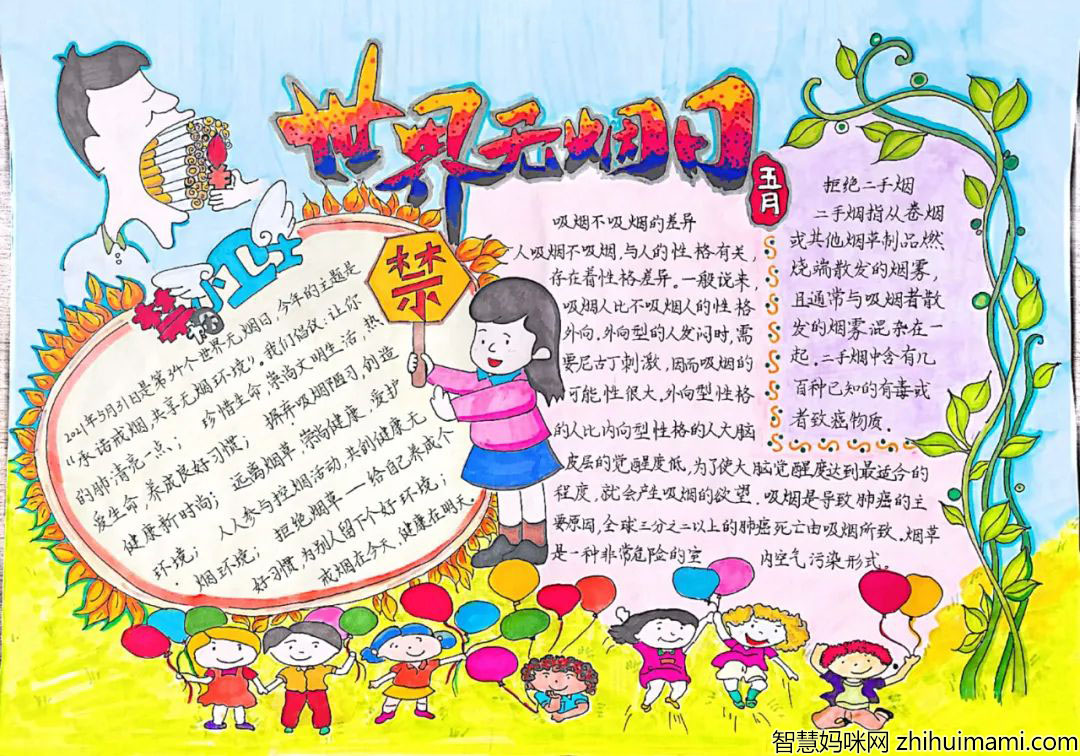 世界无烟日
五月
禁烟小卫士
禁
2021年5月31日是第34个世界无烟日，今年的主题是
“承诺戒烟，共享无烟环境”。我们倡议：让你
的肺清亮一点； 珍惜生命，崇尚文明生活，热
爱生命，养成良好习惯； 摒弃吸烟陋习，创造
健康新时尚； 远离烟草，崇尚健康，爱护
环境； 人人参与控烟活动，共创健康无
烟环境； 拒绝烟草——给自己养成个
好习惯，为别人留下个好环境；
戒烟在今天，健康在明天。
吸烟不吸烟的差异
人吸烟不吸烟，与人的性格有关，
存在着性格差异。一般说来，
吸烟人比不吸烟人的性格
外向，外向型的人发闷时，需
要尼古丁刺激，因而吸烟的
可能性很大，外向型性格
的人比内向型性格的人大脑
皮层的觉醒度低，为了使大脑觉醒度达到最适合的
程度，就会产生吸烟的欲望。吸烟是导致肺癌的主
要原因，全球三分之二以上的肺癌死亡由吸烟所致。烟草
是一种非常危险的室 内空气污染形式。
拒绝二手烟
二手烟指从卷烟
或其他烟草制品燃
烧端散发的烟雾，
且通常与吸烟者散
发的烟雾混杂在一
起。二手烟中含有几
百种已知的有毒或
者致癌物质．
智慧妈咪网 zhihuimami.com